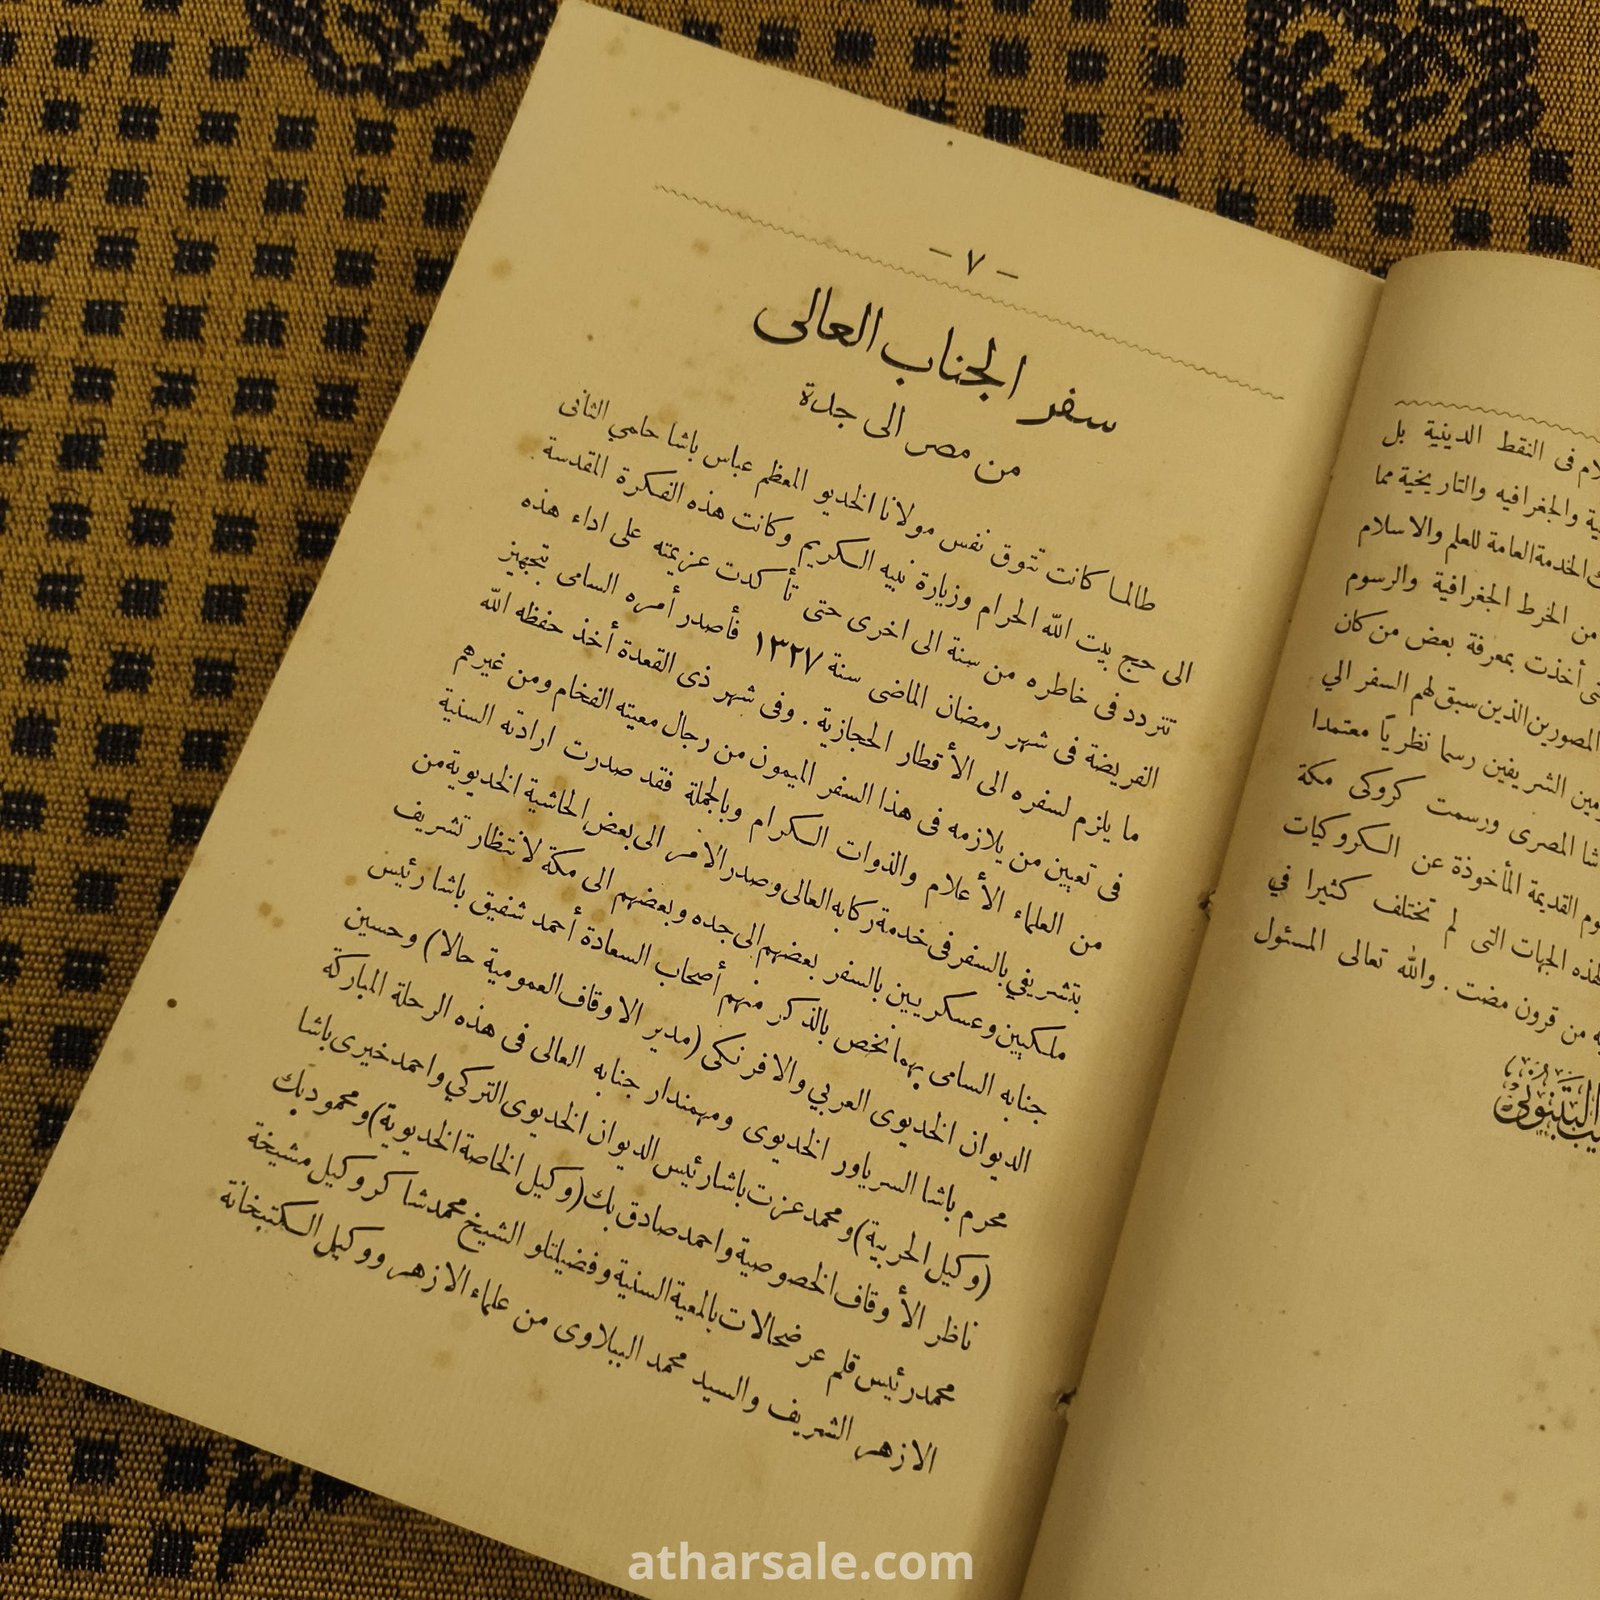 لام فى النقط الدينية بل
ية والجغرافيه والتاريخية مما
ك الخدمة العامة للعلم والاسلام
من الخرط الجغرافية والرسوم
تى أخذت بمعرفة بعض من كان
المصورين الذين سبق لهم السفر الي
مين الشريفين رسما نظريًا معتمدا
شا المصرى ورسمت كروكى مكة
وم القديمة المأخوذة عن الكروكيات
لهذه الجهات التى لم تختلف كثيرا في
يه من قرون مضت . والله تعالى المسئول
يب البتنونى
— ٧ —
سفر الجناب العالى
من مصر الى جدة
طالما كانت تتوق نفس مولانا الخديو المعظم عباس باشا حلمي الثانى
الى حج بيت الله الحرام وزيارة نبيه الكريم وكانت هذه الفكرة المقدسة
تتردد فى خاطره من سنة الى اخرى حتى تأكدت عزيمته على اداء هذه
الفريضة فى شهر رمضان الماضى سنة ١٣٢٧ فأصدر أمره السامى بتجهيز
ما يلزم لسفره الى الأقطار الحجازية . وفى شهر ذى القعدة أخذ حفظه الله
فى تعيين من يلازمه فى هذا السفر الميمون من رجال معيته الفخام ومن غيرهم
من العلماء الأعلام والذوات الكرام وبالجملة فقد صدرت ارادته السنية
بتشريفي بالسفر فى خدمة ركابه العالى وصدر الامر الى بعض الحاشية الخديوية من
ملكيين وعسكريين بالسفر بعضهم الى جده وبعضهم الى مكة لانتظار تشريف
جنابه السامى بهما نخص بالذكر منهم أصحاب السعادة أحمد شفيق باشا رئيس
الديوان الخديوى العربي والافرنكى (مدير الاوقاف العمومية حالا) وحسين
محرم باشا السرياور الخديوى ومهمندار جنابه العالى فى هذه الرحلة المباركة
(وكيل الحربية) ومحمد عزت باشا رئيس الديوان الخديوى التركي واحمد خيرى باشا
ناظر الأوقاف الخصوصية واحمد صادق بك (وكيل الخاصة الخديوية) ومحمود بك
محمد رئيس قلم عرضحالات بالمعية السنية وفضيلتلو الشيخ محمد شاكر وكيل مشيخة
الازهر الشريف والسيد محمد الببلاوى من علماء الازهر ووكيل الكتبخانة
atharsale.com